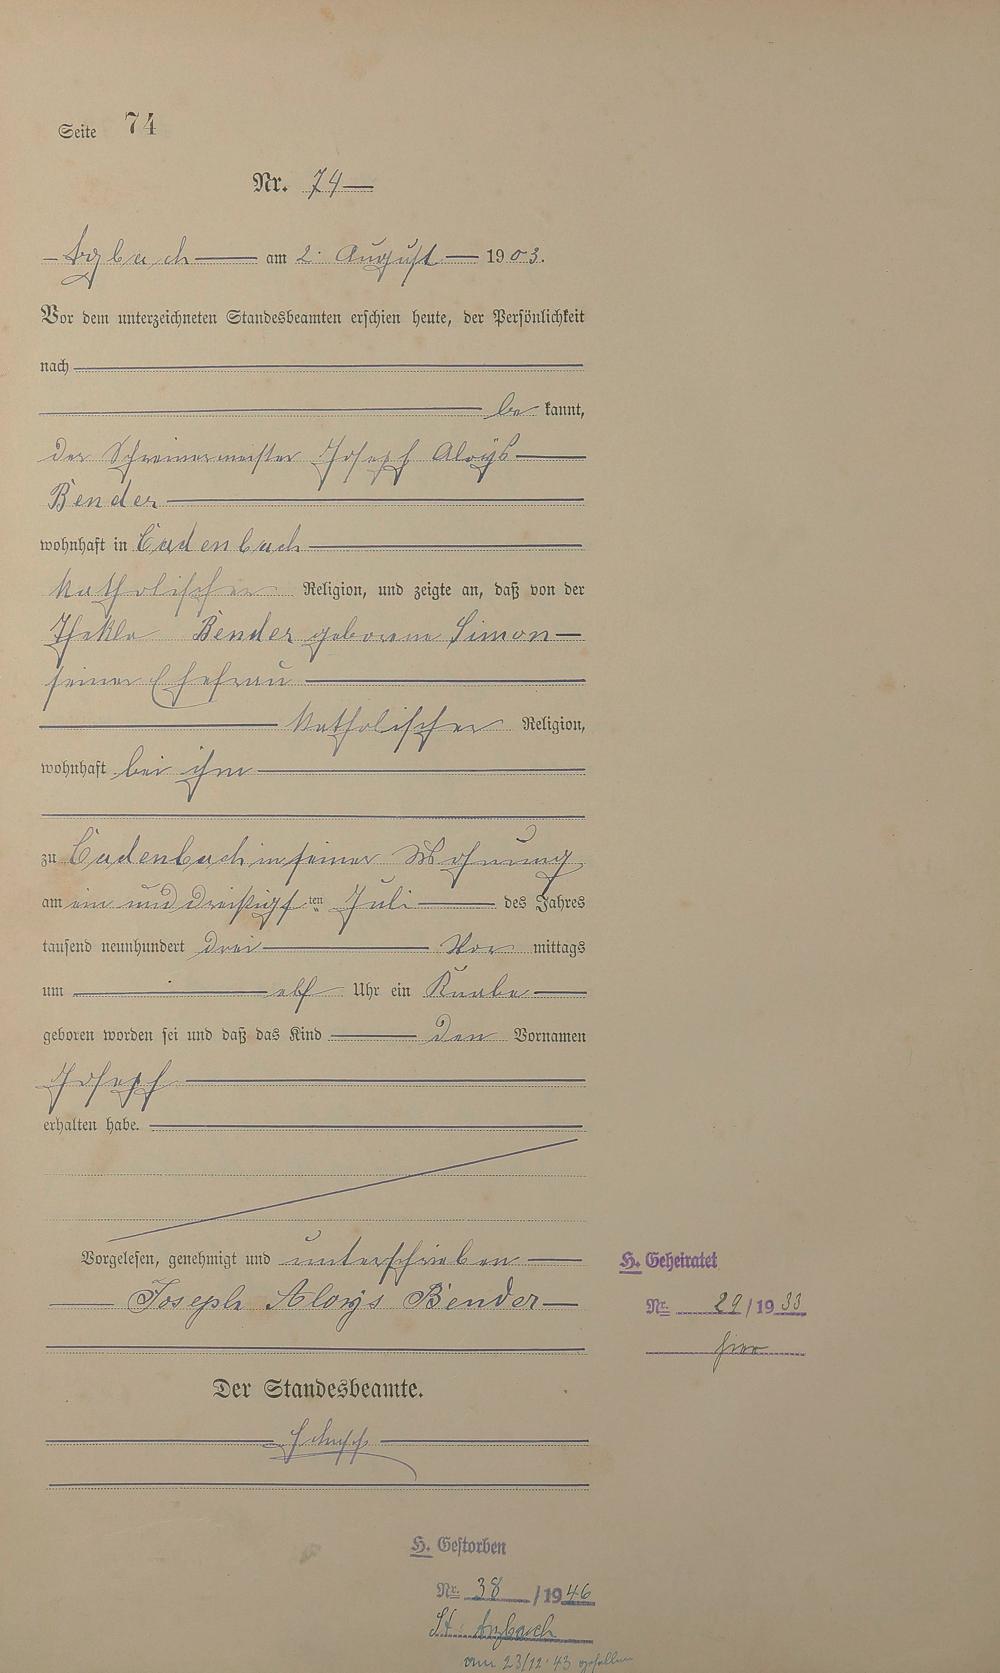 Seite 74
Nr. 74
Arzbach am 2. August 1903.
Vor dem unterzeichneten Standesbeamten erschien heute, der Persönlichkeit
nach
be kannt,
der Schreinermeister Joseph Aloÿs
Bender
wohnhaft in Cadenbach
katholischer Religion, und zeigte an, daß von der
Thekla Bender geborene Simon
seiner Ehefrau
katholischer Religion,
wohnhaft bei ihm
zu Cadenbach in seiner Wohnung
am ein und dreißigsten Juli des Jahres
tausend neunhundert drei Vor mittags
um elf Uhr ein Knabe
geboren worden sei und daß das Kind den Vornamen
Joseph
erhalten habe.
Vorgelesen, genehmigt und unterschrieben
Joseph Aloÿs Bender
H. Geheiratet
Nr. 29/1933
hier
Der Standesbeamte.
H. Gestorben
Nr. 38/1946
St. Arzbach
am 23/12.43 gefallen